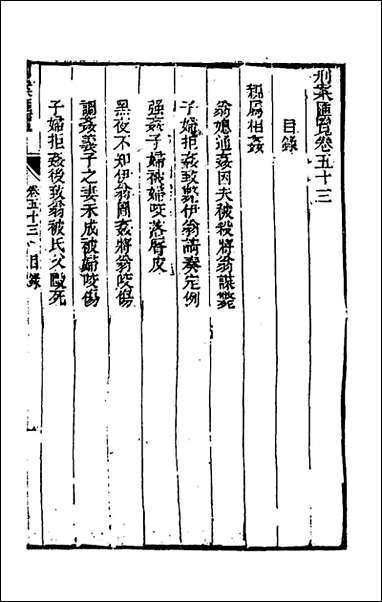 刑案匯覽卷五十三
目錄
親屬相姦
翁媳通姦因夫被殺將翁謀斃
子婦拒姦致斃伊翁請奏定例
强姦子婦被婦咬落唇皮
黑夜不知伊翁圖姦將翁咬傷
調姦義子之妻未成被婦咬傷
子婦拒姦後致翁被氏父毆死
卷五十三 目錄